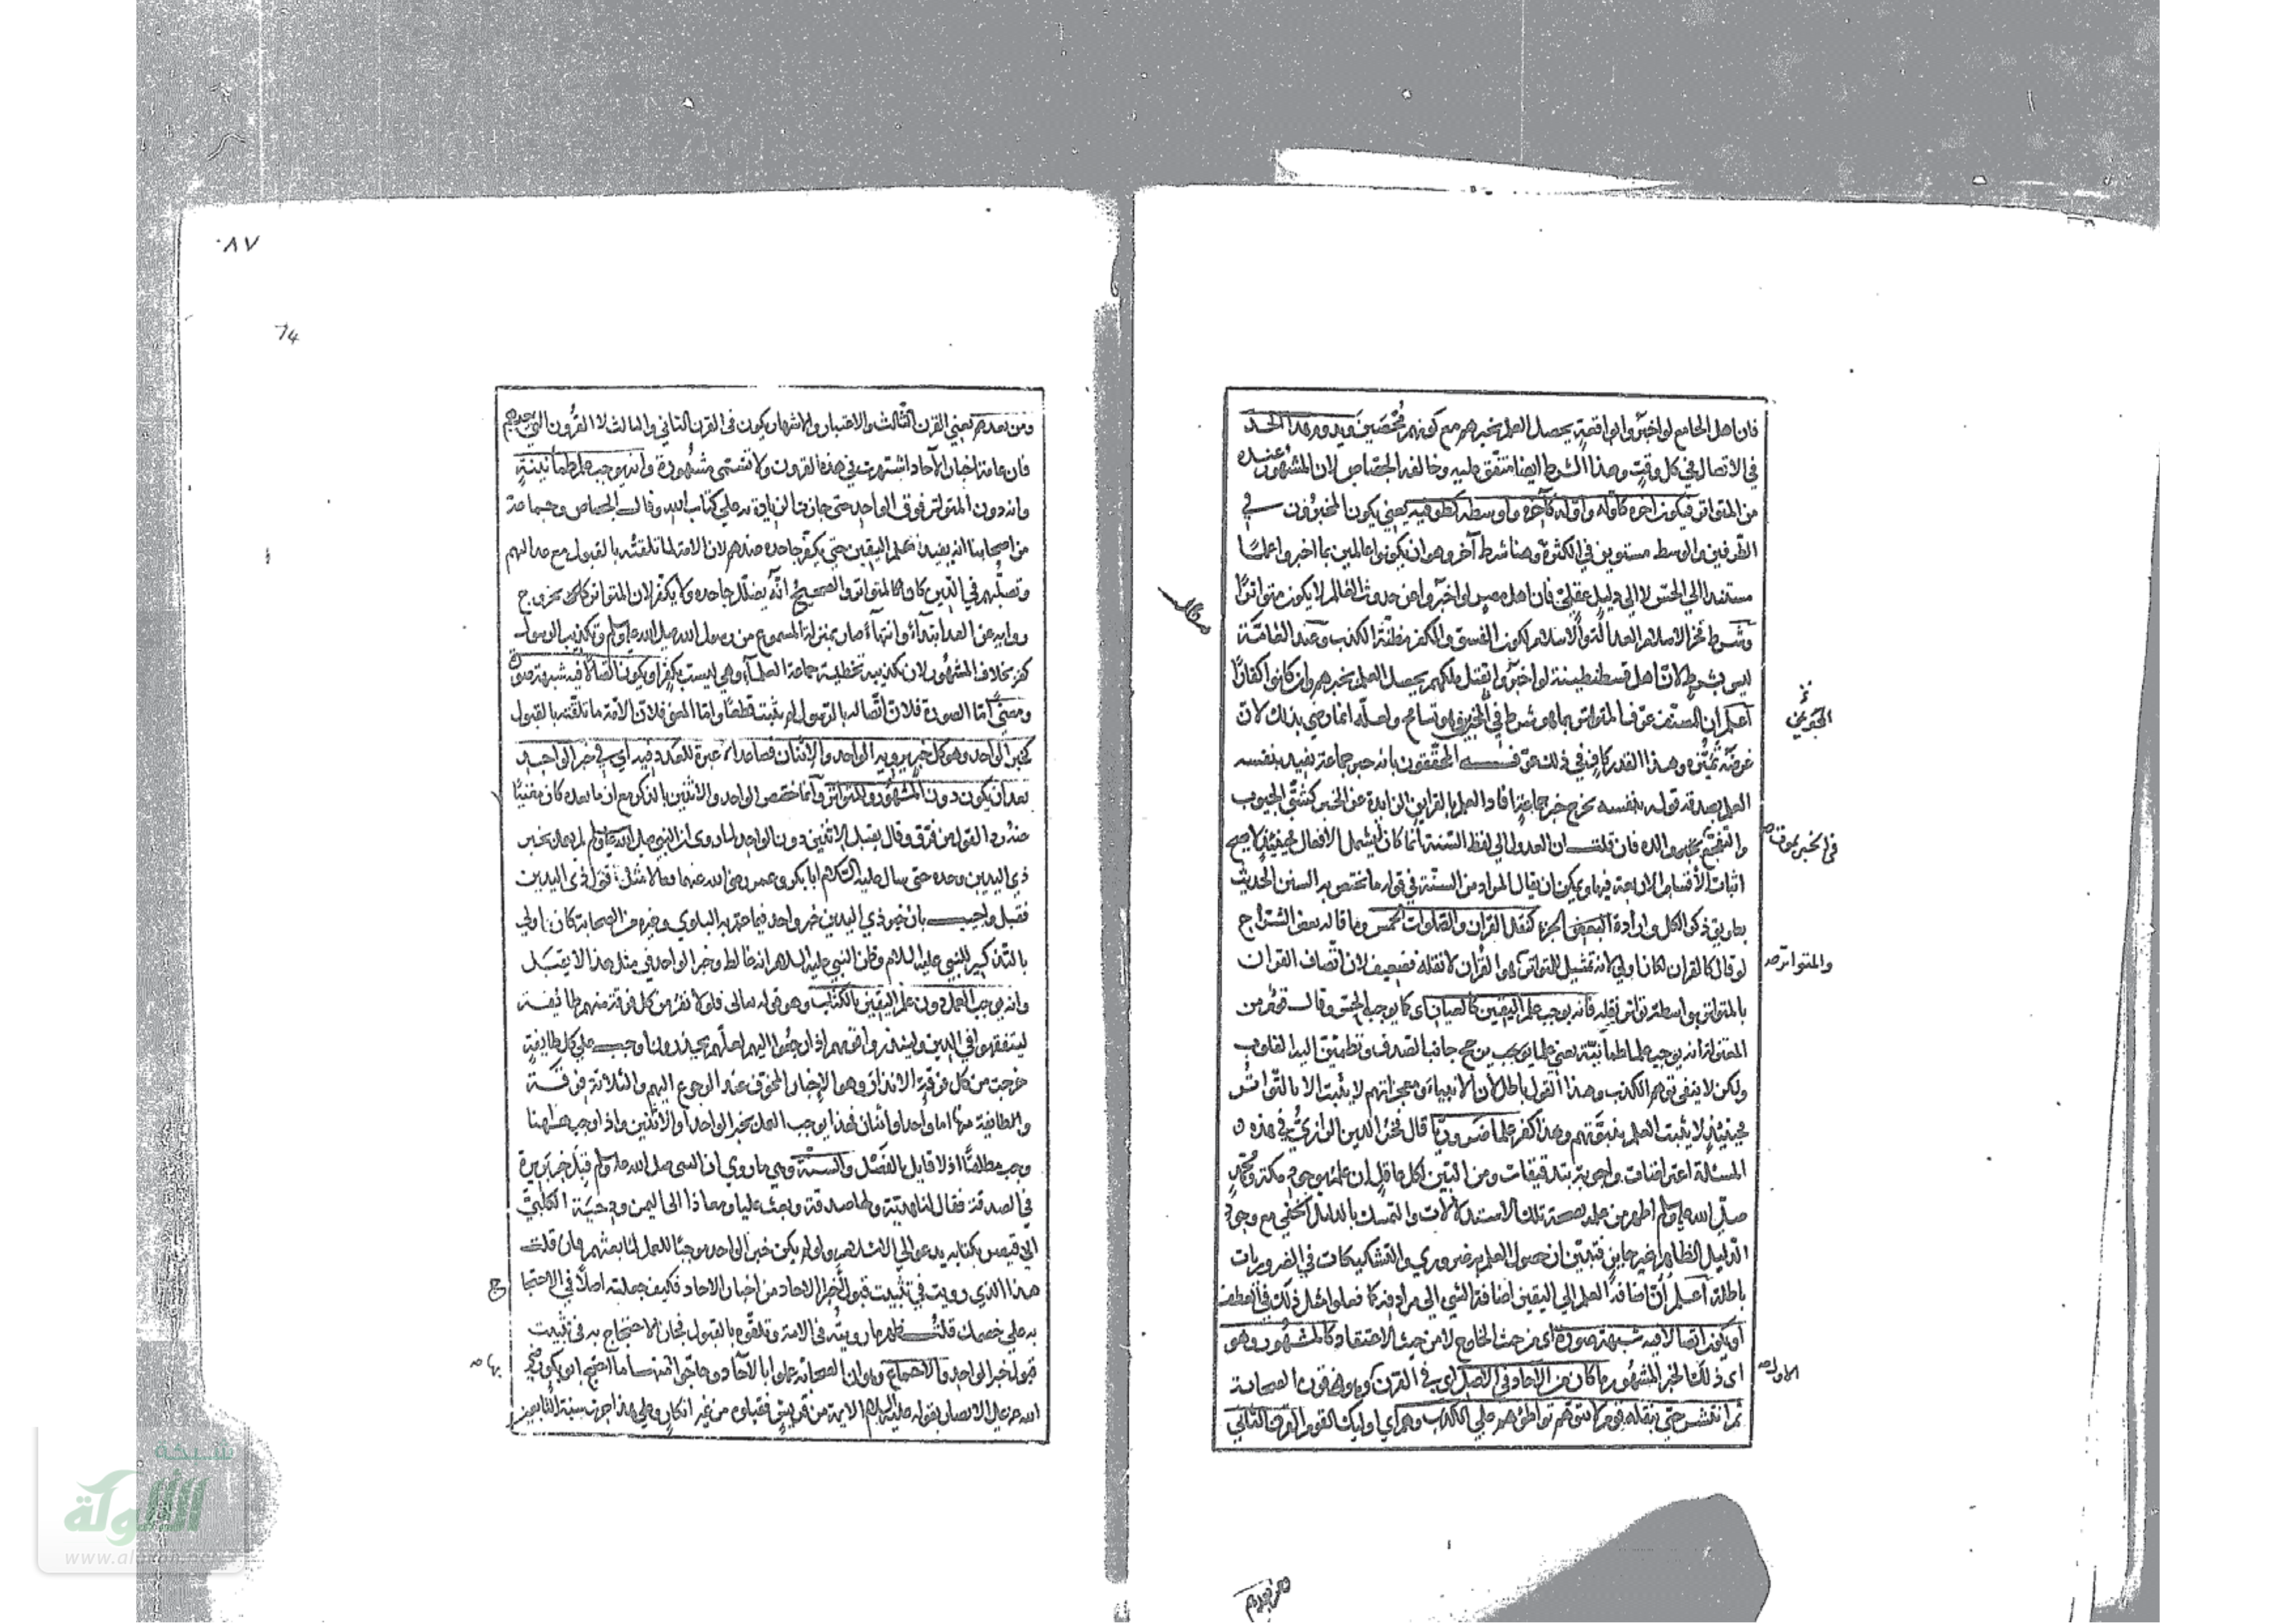 فان اهل الجامع لو اخبروا بواقعة يحصل العلم بخبرهم مع كونهم محصَين ويدوم هذا الحد
في الاتصال في كل وقت وهذا الشرط ايضا متفق عليه وخالفه الجصاص لان المشهور عنده
من المتواتر فيكون اخره كاوله واوله كاخره واوسطه كطرفيه يعني يكون المخبرون في
الطرفين والوسط مستوين في الكثرة وهنا شرط آخر وهو ان يكونوا عالمين بما اخبروا علمًا
مستندا الي الحس لا الي دليل عقلي فان اهل مصر لو اخبروا عن حدوث العالم لا يكون متواترًا
وشرط فخر الاسلام العدالة والاسلام لكون الفسق والكفر مظنة الكذب وعند العامة
ليس بشرط لان اهل قسطنطينة لو اخبروا بقتل ملكهم يحصل العلم بخبرهم وان كانوا كفارًا
اعلم ان المصنف عرّف المتواتر بما هو شرط في المخبرين فهو تسامح ولعله انما رضي بذلك لان
غرضه تميزه وهذا القدر كاف في ذلك عرّفـه المحققون بانه خبر جماعة يفيد بنفسه
العلم بصدقه قوله بنفسه يخرج خبر جماعة افاد العلم بالقراين الزايدة عن الخبر كشق الجيوب
والتفجع بموت والده فان قلت ان العدول الي لفظ السنة انما كان ليشمل الافعال فحينئذ لا يصح
اثبات الاقسام الاربعة فيها ويمكن ان يقال المراد من السنة في قوله ما تختص به السنن الحديث
بطريق ذكر الكل وارادة البعض الجزء كنقل القران والصلوات الخمس وما قاله بعض الشراح
لو قال كالقران لكان اولي لانه تمثيل للتواتر هو القران لا نقله فضعيف لان اتصاف القران
بالمتواتر بواسطة تواتر نقله فانه يوجب علم اليقين كالعيان اي كما يوجب الحس وقال قوم من
المعتزلة انه يوجب علم طمأنينة يعني علما يوجب يرجح جانب الصدق وتطمئن اليه القلوب
ولكن لا ينفي توهم الكذب وهذا القول باطل لان الانبياء ومعجزاتهم لا يثبت الا بالتواتر
فحينئذ لا يثبت العلم بنبوتهم وهذا كفر علما ضروريا قال فخر الدين الرازي في هذه
المسئلة اعتراضات واجوبة بتدقيقات ومن البين لكل عاقل ان علمه بوجود مكة ومحمد
صلي الله عليه وسلم اظهر من علمه بصحة تلك الاستدلالات والتمسك بالدليل الخفي مع وجود
الدليل الظاهر غير جايز فتبين ان حصول العلم به ضروري والتشكيكات في الضروريات
باطلة اعلم ان اضافة العلم الي اليقين اضافة الشي الي مرادفه كما فعلوا مثل ذلك في العطف
او يكون اتصالا فيه شبهة صورة اي من حيث الخارج لا من حيث الاعتقاد كالمشهور وهو
اي ذلك الخبر المشهور ما كان من الآحاد في الاصل اي في القرن وهو قرن الصحابة
ثم انتشر حتي ينقله قوم لا يتوهم تواطؤهم علي الكذب وهم اي اوليك القوم القرن الثاني
في الخبر بموت
والمتواتر
الاول
ومن بعدهم
٠٨٧
74
ومن بعدهم يعني القرن الثالث والاعتبار والاشتهار يكون في القرن الثاني والثالث لا القرون التي بعدهم
فان عامة اخبار الآحاد اشتهرت في هذه القرون ولا تسمي مشهورة وانه يوجب علم طمأنينة
وانه دون المتواتر فوق الواحد حتي جازت الزيادة به علي كتاب الله وقال الجصاص وجماعة
من اصحابنا انه يفيد علم اليقين حتي يكفر جاحده عندهم لان الامة لما تلقته بالقبول مع عدالتهم
وتصلبهم في الدين كان كالمتواتر والصحيح انه يضلل جاحده ولا يكفر لان المتواتر
رواية عن العد ابتداء وانتهاء صار بمنزلة المسموع من رسول الله صلي الله عليه وسلم وتكذيب الرسول
كفر بخلاف المشهور لان تكذيبه تخطية جماعة العلماء وهي ليست بكفر او يكون اتصالا فيه شبهة صورة
ومعنًي اما الصورة فلان اتصاله بالرسول لم يثبت قطعًا واما المعني فلان الامة ما تلقته بالقبول
كخبر الواحد وهو كل خبر يرويه الواحد والاثنان فصاعدا لا عبرة للعدد فيه اي في خبر الواحد
بعد ان يكون دون المشهور والمتواتر وانما خصص الواحد والاثنين بالذكر مع ان ما بعده كان مغنيًا
عنه لقول من فرق وقال يقبل الاثنين دون الواحد لما روي ان النبي صلي الله عليه وسلم لم يعمل بخبر
ذي اليدين وحده حتي سال عليه السلام ابا بكر وعمر رضي الله عنهما فقالا مثل قول ذي اليدين
فقبل واجيب بان خبر ذي اليدين خبر واحد فيما عم به البلوي وغيره من الصحابة كان اولي
بالتذكير للنبي عليه السلام وظن النبي عليه السلام انه غالط وخبر الواحد في مثل هذا لا يقبل
وانه يوجب العمل دون علم اليقين بالكتاب وهو قوله تعالي فلولا نفر من كل فرقة منهم طائفة
ليتفقهوا في الدين ولينذروا قومهم اذا رجعوا اليهم لعلهم يحذرون اوجب علي كل طايفة
خرجت من كل فرقة الانذار وهو الاخبار المخوف عند الرجوع اليهم والثلاثة فرقة
والطايفة منها اما واحد او اثنان فهذا يوجب العمل بخبر الواحد او الاثنين واذا اوجب ههنا
وجب مطلقًا اذ لا قايل بالفصل والسنة وهي ما روي ان النبي صلي الله عليه وسلم قبل خبر بريرة
في الصدقة فقال لنا هدية ولها صدقة وبعث عليا ومعاذا الي اليمن ودحية الكلبي
الي قيصر بكتابه يدعو الي الاسلام ولو لم يكن خبر الواحد موجبًا للعمل لما بعثهم فان قلت
هذا الذي رويت في تثبيت قبول اخبار الاحاد من اخبار الاحاد فكيف جعلته اصلا في الاحتجا
ج
به علي خصمك قلت ظهر ما رويته في الامة وتلقوه بالقبول فجاز الاحتجاج به في تثبيت
قبول خبر الواحد والاجماع وهو ان الصحابة عملوا بالآحاد وحاجوا بها منها ما احتج ابو بكر رضي
الله عنه علي الانصار بقوله عليه السلام الايمة من قريش فقبلوه من غير انكار وعلي هذا جرت سنة التابعين
بها
شبكة
الألوكة